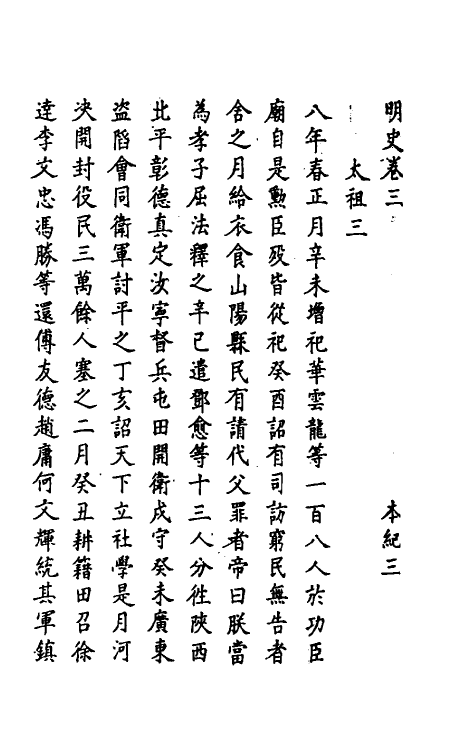 明史卷三　本紀三
太祖三
八年春正月辛未增祀華雲龍等一百八人於功臣
廟自是勲臣歿皆從祀癸酉詔有司訪窮民無告者
舍之月給衣食山陽縣民有請代父罪者帝曰朕當
為孝子屈法釋之辛巳遣鄧愈等十三人分徃陜西
北平彰德真定汝寧督兵屯田開衛戍守癸未廣東
盜陷會同衛軍討平之丁亥詔天下立社學是月河
决開封役民三萬餘人塞之二月癸丑耕籍田召徐
達李文忠馮勝等還傅友德趙庸何文輝統其軍鎮